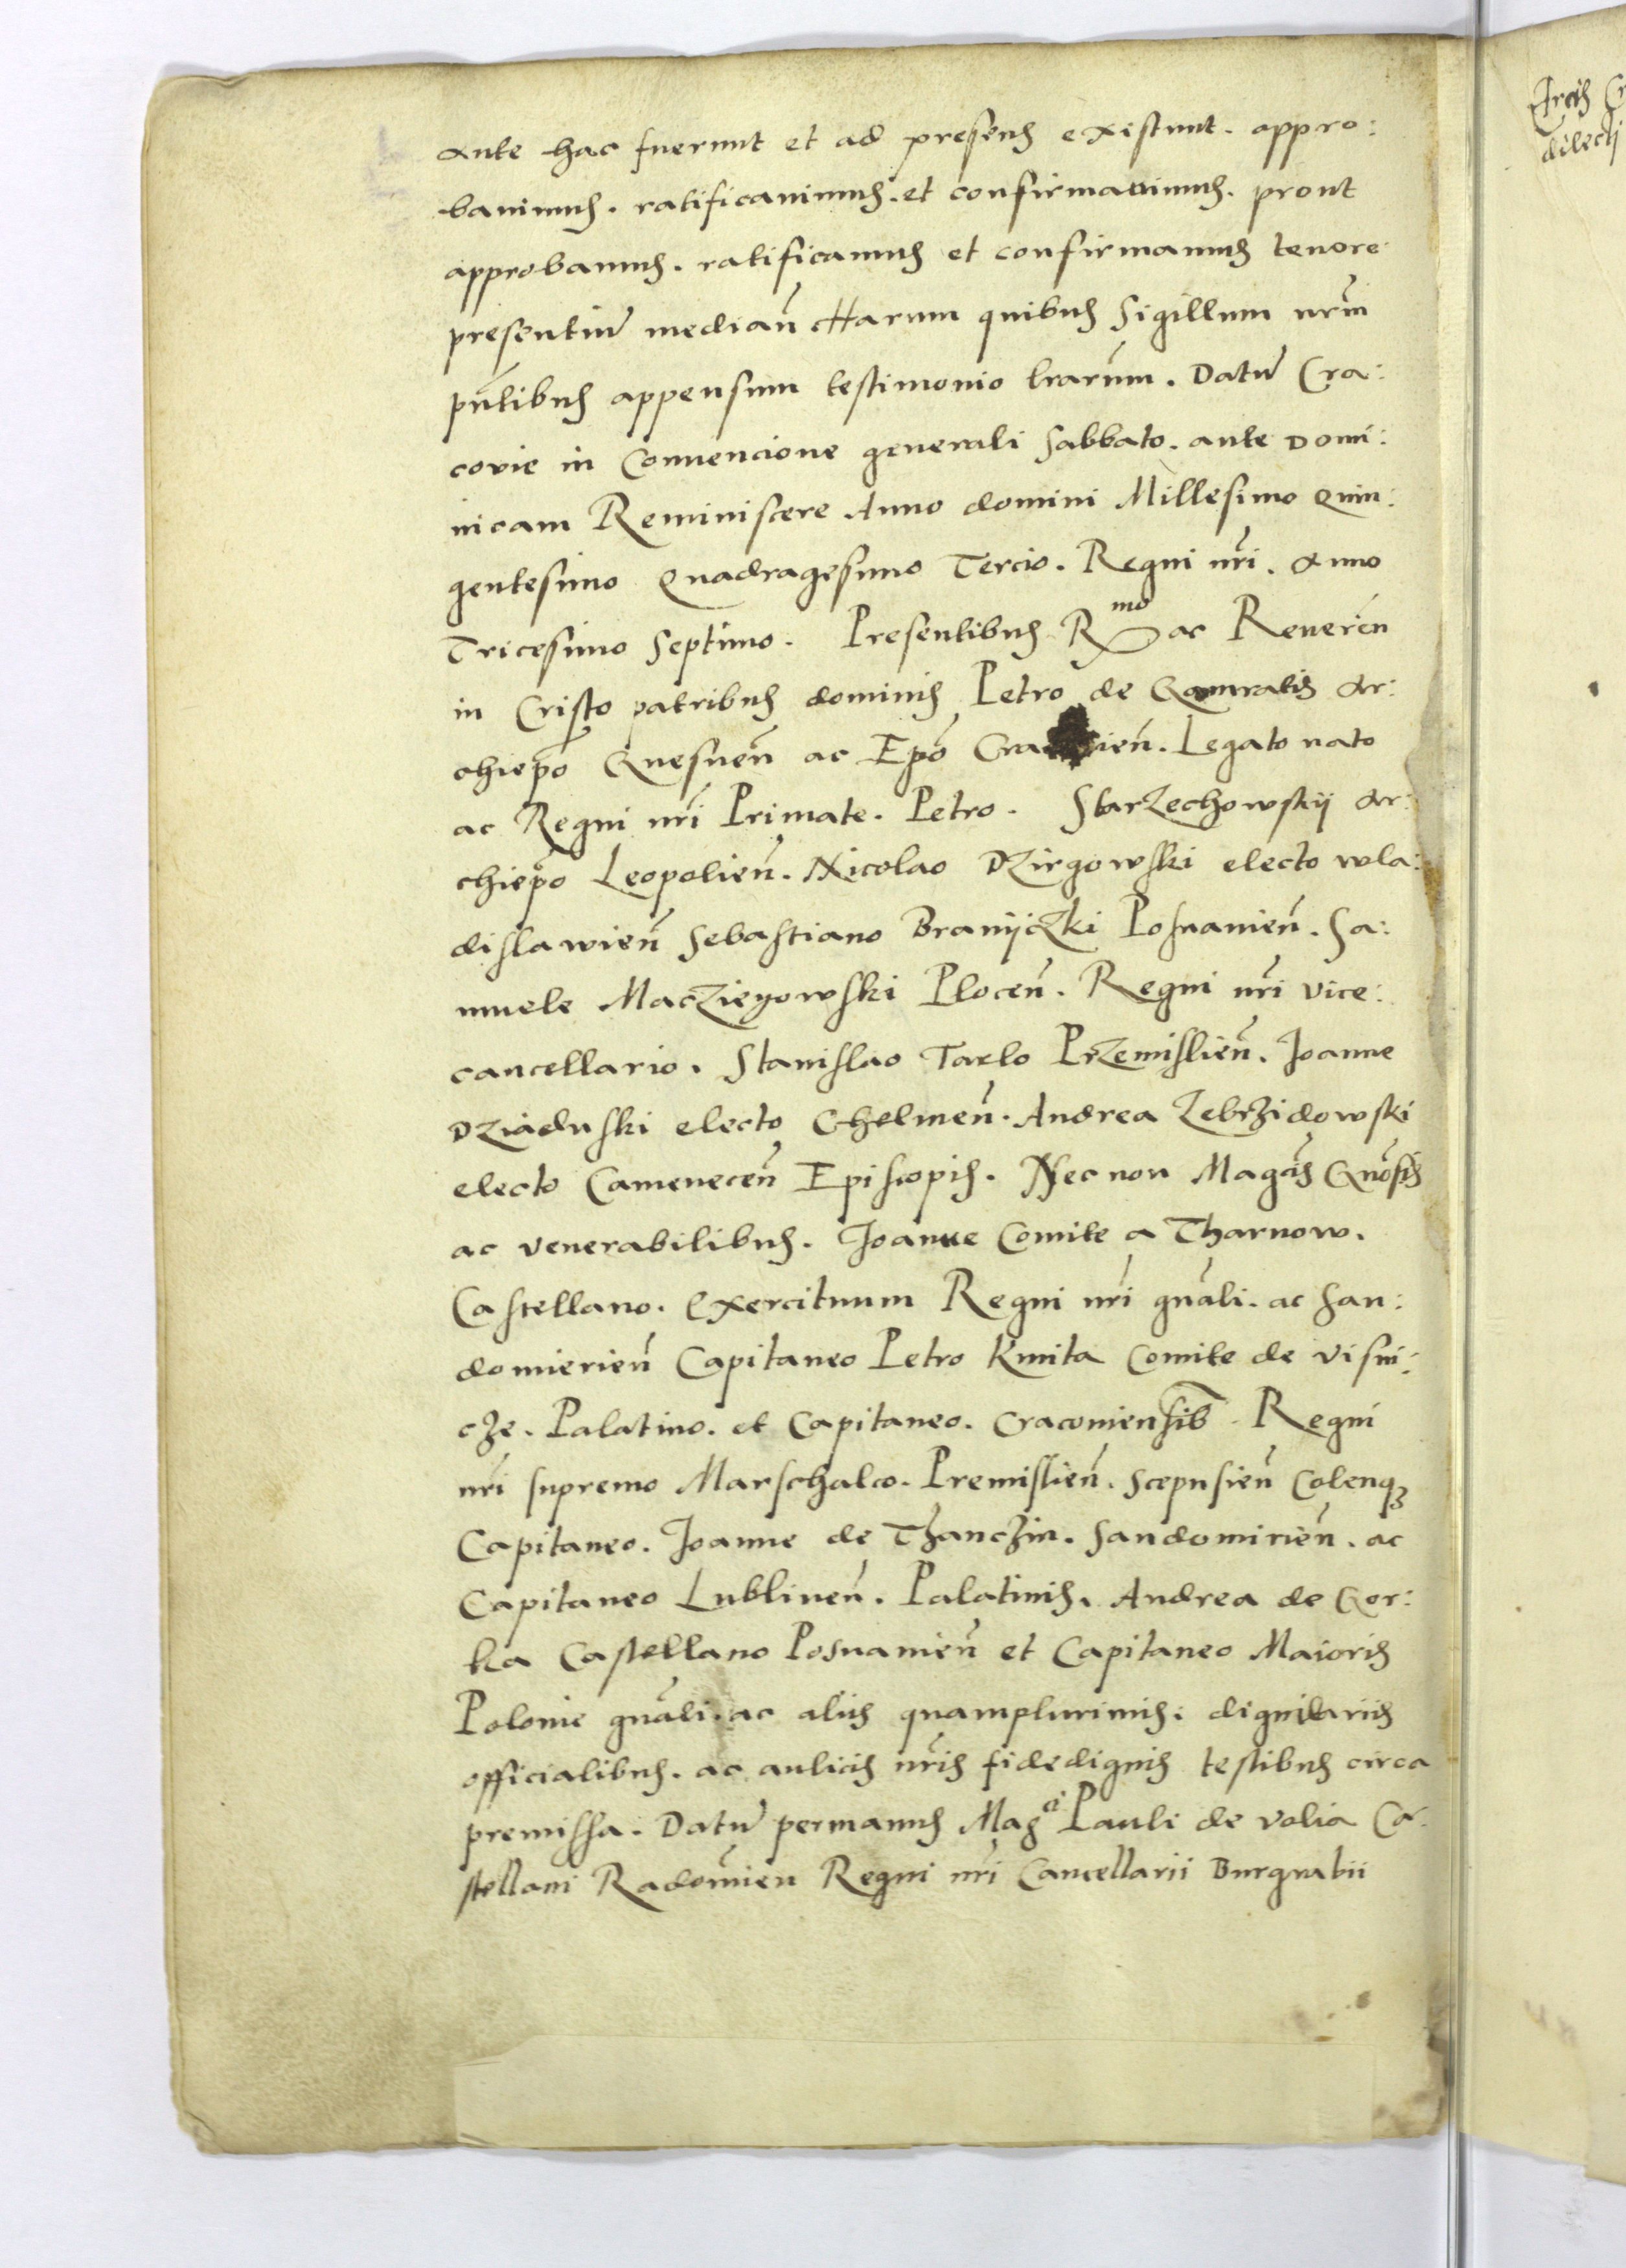 ante hac fuerunt et ad presens existunt. appro:
bavimus. ratificavimus. et confirmavimus. prout
approbamus. ratificamus et confirmamus tenore
presentiũ mediañ Harum quibus Sigillum nrm̃
pñtibus appensum testimonio lrarũm. Datũ Cra:
covie in Convencione generali Sabbato. ante Domi:
nicam Reminiscere Anno domini Millesimo Quin:
gentesimo Quadragesimo Tercio. Regni nrĩ. Anno
Tricesimo Septimo. Presentibus Rmo ac Reverẽn
in Cristo patribus dominis Petro de Gamratis Ar:
chiepõ Gnesneñ ac Epõ Legato nato
ac Regni nrĩ Primate. Petro. Starzechowskij Ar:
chiepõ Leopolieñ. Nicolao Dzirgowski electo wla:
dislawieñ Sebastiano Branijczki Posnanieñ. Sa:
muele Macziegowski Ploceñ. Regni nrĩ vice:
cancellario. Stanislao Tarlo Przemislieñ. Joanne
Dziaduski electo Chelmeñ. Andrea Zebrzidowski
electo Cameneceñ Episcopis. Nec non Magcĩs Gnõsis
ac venerabilibus. Joanne Comite a Tharnow.
Castellano. Exercituum Regni nrĩ gnãli. ac San:
domierieñ Capitaneo Petro Kmita Comite de Visni:
cze. Palatino. et Capitaneo. Cracoviensib Regni
nrĩ supremo Marschalco. Premislieñ. Scepusieñ Colenq3
Capitaneo. Joanne de Thanczin. Sandomirieñ. ac
Capitaneo Lublineñ. Palatinis. Andrea de Gor:
ka Castellano Posnanieñ et Capitaneo Maioris
Polonie gnãli. ac aliis quamplurimis. dignitariis
officialibus. ac aulicis nrĩs fidedignis testibus circa
premissa. Datũ permanus Magci Pauli de Volia Ca:
stellani Radomĩen Regni nrĩ Cancellarii Burgrabii
dilecti